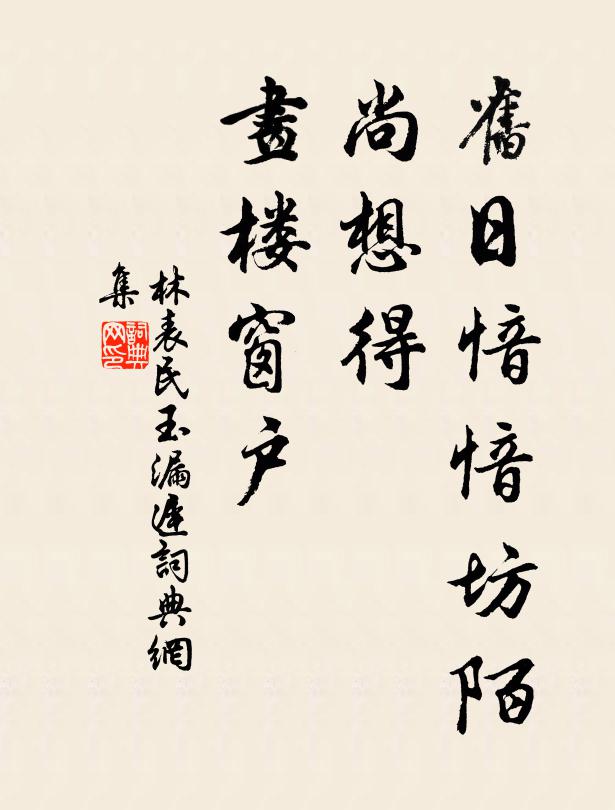 舊日愔愔坊陌
尚想得
畫楼窗户
林表民玉漏遲詞典網
集
詞典网印